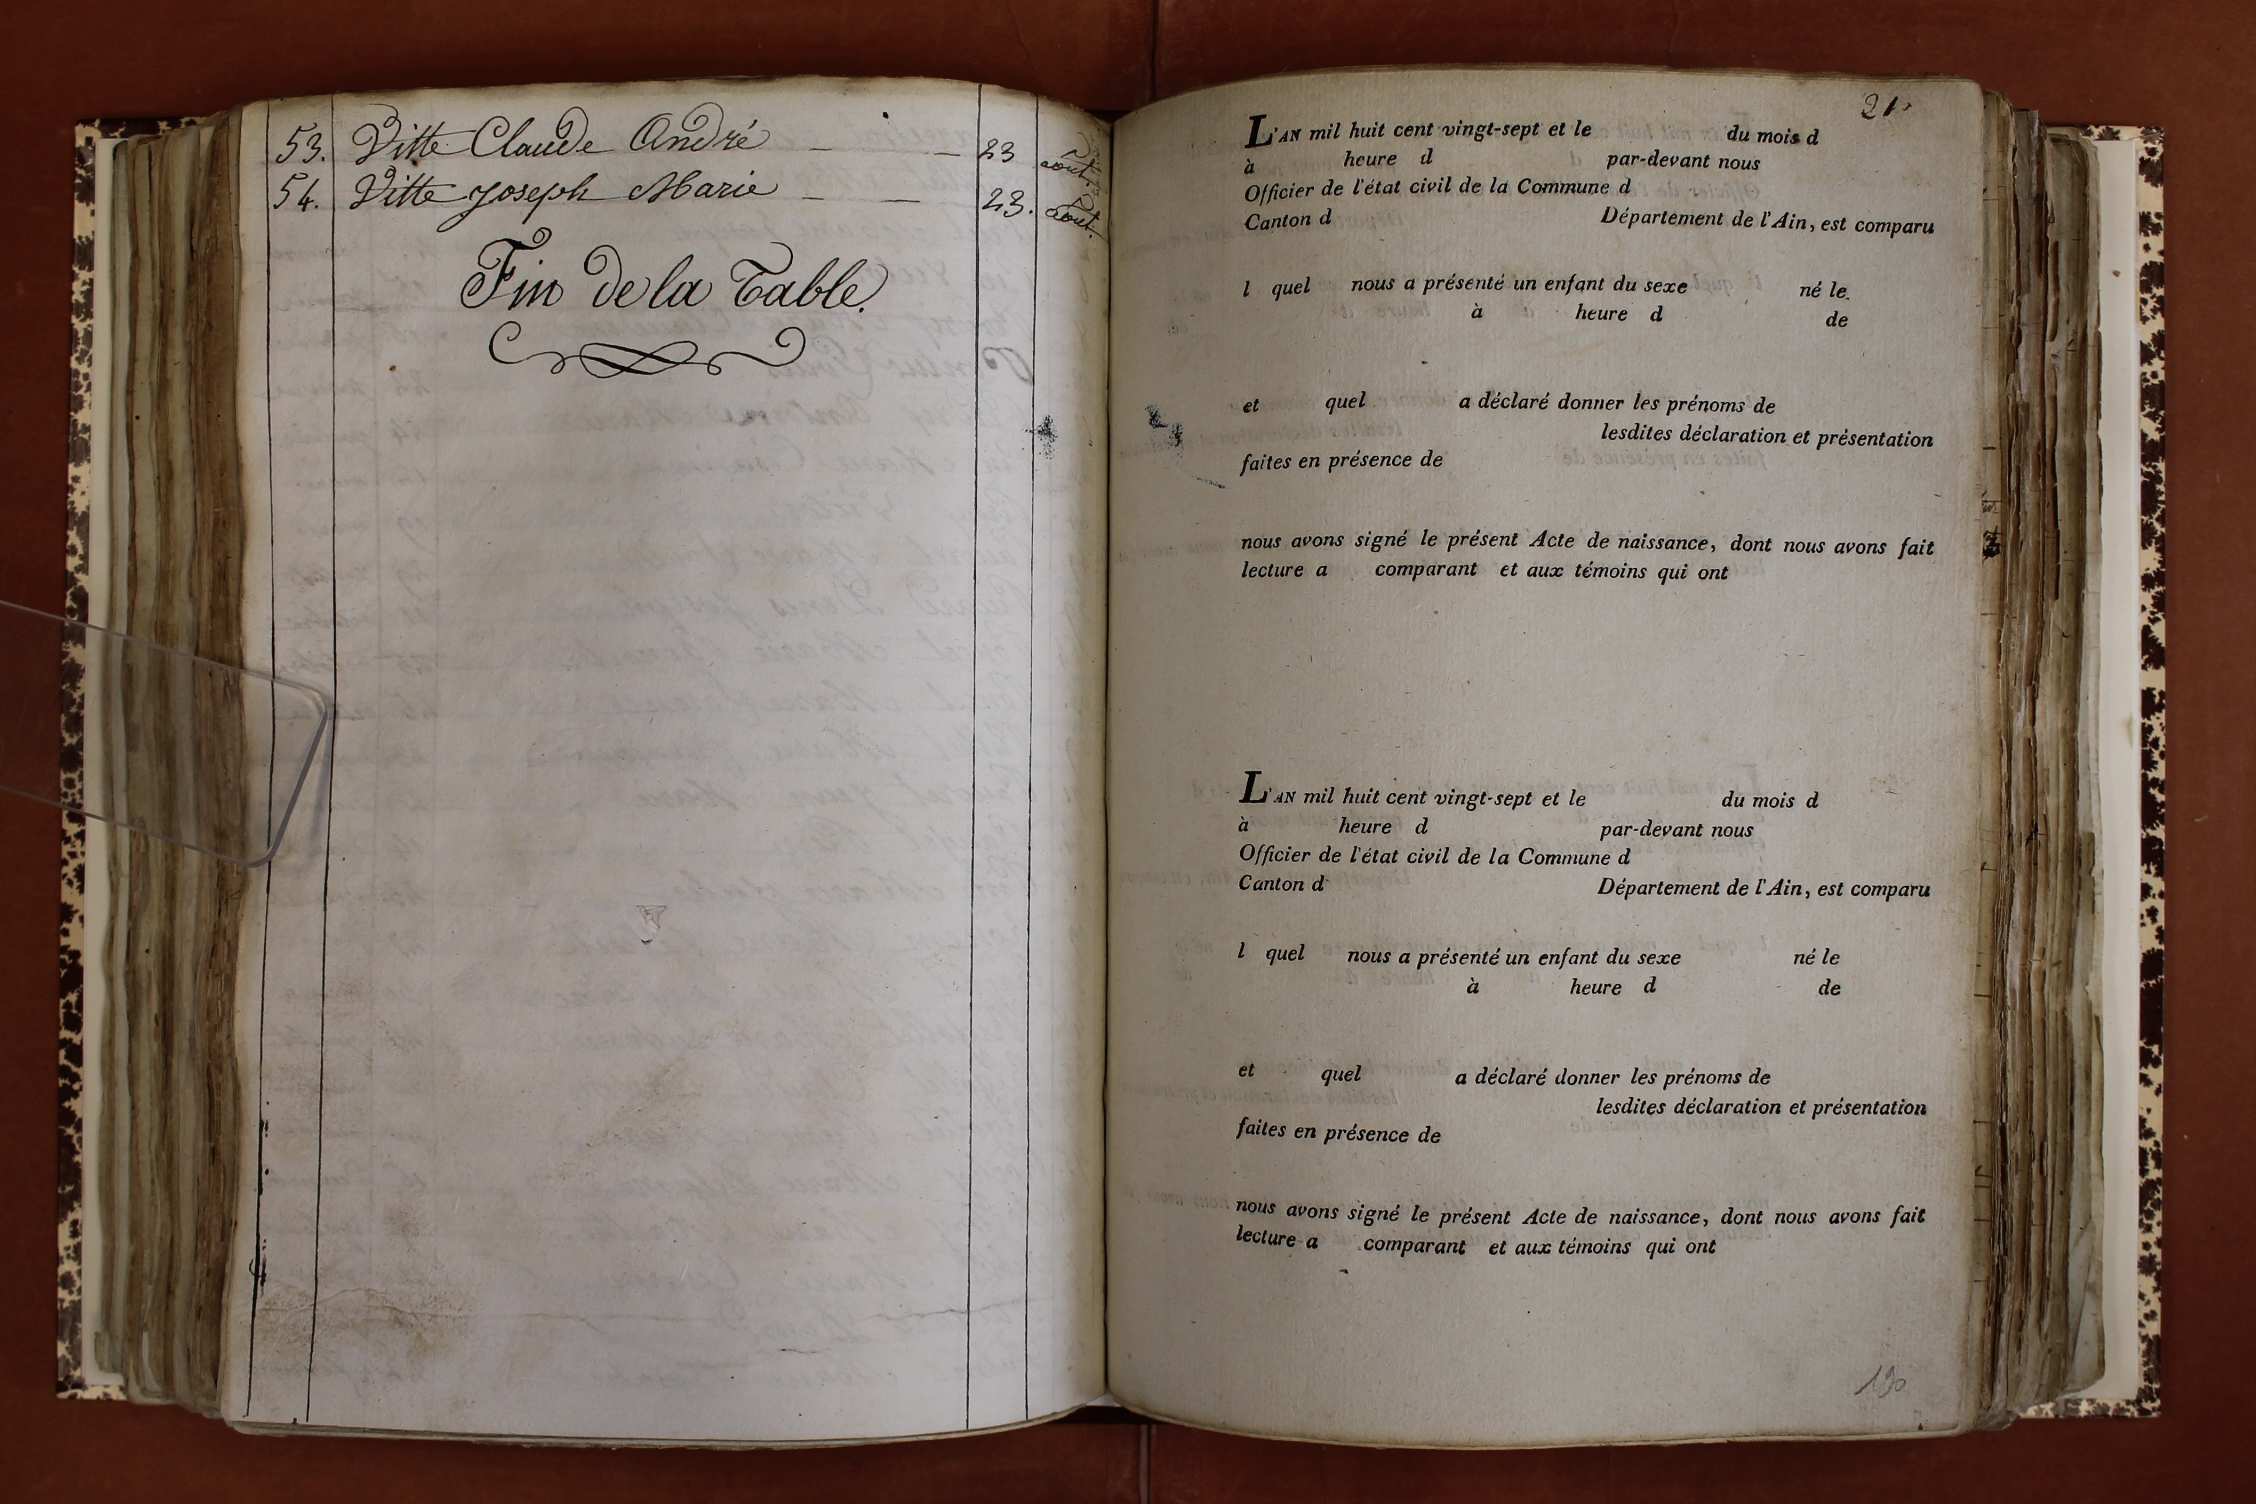 53. Vitte Claude André — — 23 aout.
54. Vitte Joseph Marie — — 23. aout.
Fin de la Table.
21.
L'AN mil huit cent vingt-sept et le du mois d
à heure d par-devant nous
Officier de l'état civil de la Commune d
Canton d Département de l'Ain, est comparu
l quel nous a présenté un enfant du sexe né le
à heure d de
et quel a déclaré donner les prénoms de
lesdites déclaration et présentation
faites en présence de
nous avons signé le présent Acte de naissance, dont nous avons fait
lecture a comparant et aux témoins qui ont
L'AN mil huit cent vingt-sept et le du mois d
à heure d par-devant nous
Officier de l'état civil de la Commune d
Canton d Département de l'Ain, est comparu
l quel nous a présenté un enfant du sexe né le
à heure d de
et quel a déclaré donner les prénoms de
lesdites déclaration et présentation
faites en présence de
nous avons signé le présent Acte de naissance, dont nous avons fait
lecture a comparant et aux témoins qui ont
190